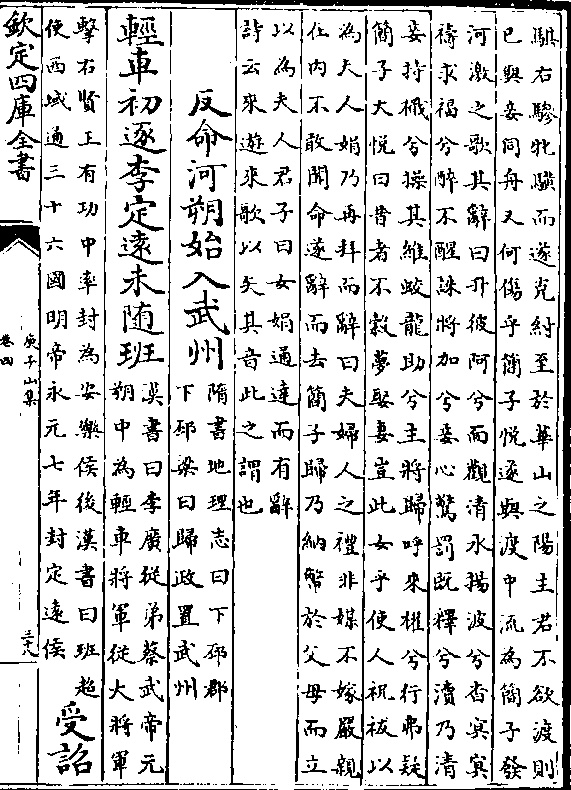 騏右驂牝驥而遂克紂至於華山之陽主君不欲渡則
已與妾同舟又何傷乎簡子悅遂與渡中流為簡子發
河激之歌其辭曰升彼阿兮而觀清水揚波兮杳冥冥
禱求福兮醉不醒誅將加兮妾心驚罰既釋兮瀆乃清
妾持檝兮操其維蛟龍助兮主將歸呼來櫂兮行弗疑
簡子大悅曰昔者不穀夢娶妻豈此女乎使人祝祓以
為夫人娟乃再拜而辭曰夫婦人之禮非媒不嫁嚴親
在内不敢聞命遂辭而去簡子歸乃納幣於父母而立
以為夫人君子曰女娟通達而有辭
詩云來遊來歌以矢其音此之謂也
反命河朔始入武州
隋書地理志曰下邳郡
下邳梁曰歸政置武州
輕車初逐李定遠未随班
漢書曰李廣從弟蔡武帝元
朔中為輕車將軍從大將軍
擊右賢王有功中率封為安樂侯後漢書曰班超
使西域通三十六國明帝永元七年封定遠侯
受詔
欽定四庫全書
庾子山集
卷四
三六